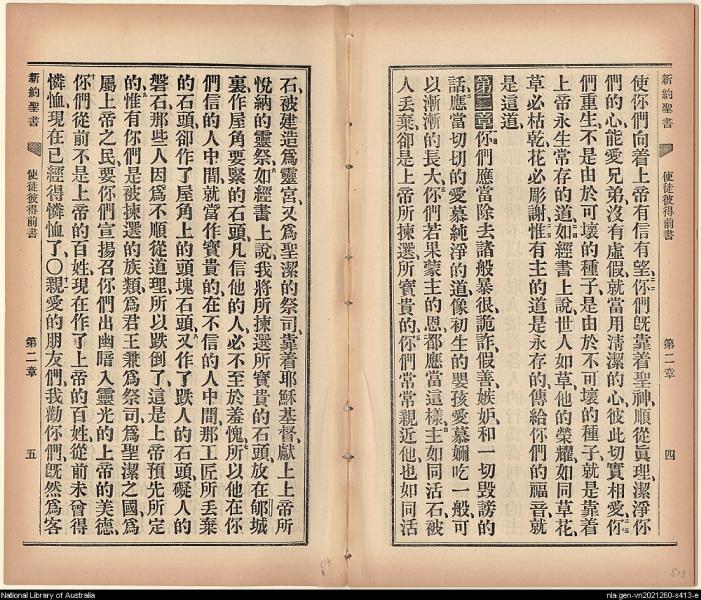 新約聖書 使徒彼得前書 第二章 四
使你們向着上帝有信有望、你們旣靠着聖神、順從眞理、潔淨你
們的心、能愛兄弟、沒有虛假、就當用淸潔的心、彼此切實相愛、你
們重生、不是由於可壞的種子、是由於不可壞的種子、就是靠着
上帝永生常存的道、如經書上說、世人如草、他的榮耀、如同草花、
草必枯乾、花必彫謝、惟有主的道是永存的、傳給你們的福音、就
是這道、
第二章 你們應當除去諸般暴很、詭詐、假善、嫉妒、和一切毀謗的
話、應當切切的愛慕純淨的道、像初生的嬰孩愛慕嬭吃一般、可
以漸漸的長大、你們若果蒙主的恩、都應當這樣、主如同活石、被
人丟棄、卻是上帝所揀選所寶貴的、你們常常親近他、也如同活
新約聖書 使徒彼得前書 第二章 五
石、被建造爲靈宮、又爲聖潔的祭司、靠着耶穌基督、獻上上帝所
悅納的靈祭、如經書上說、我將所揀選所寶貴的石頭、放在郇城
裏、作屋角要緊的石頭、凡信他的人、必不至於羞愧、所以他在你
們信的人中間、就當作寶貴的、在不信的人中間、那工匠所丟棄
的石頭、卻作了屋角上的頭塊石頭、又作了跌人的石頭、礙人的
磐石、那些人因爲不順從道理、所以跌倒了、這是上帝預先所定
的、惟有你們是被揀選的族類、爲君王兼爲祭司、爲聖潔之國、爲
屬上帝之民、要你們宣揚召你們出幽暗入靈光的上帝的美德、
你們從前不是上帝的百姓、現在作了上帝的百姓、從前未曾得
憐恤、現在已經得憐恤了、〇親愛的朋友們、我勸你們、旣然爲客
814
813
National Library of Australia
nla.gen-vn2021260-s413-e